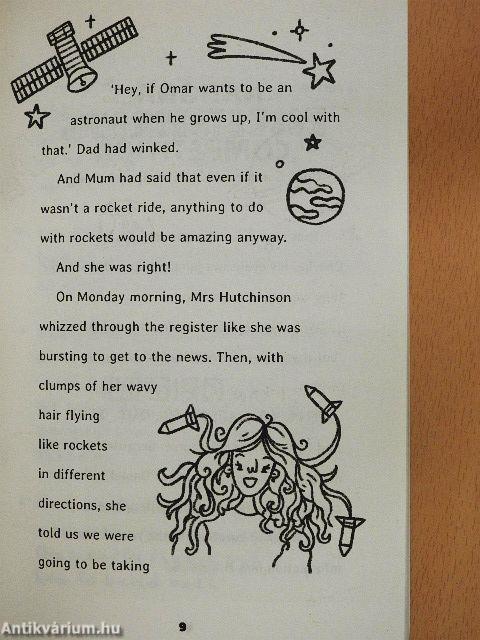 'Hey, if Omar wants to be an
astronaut when he grows up, I'm cool with
that.' Dad had winked.
And Mum had said that even if it
wasn't a rocket ride, anything to do
with rockets would be amazing anyway.
And she was right!
On Monday morning, Mrs Hutchinson
whizzed through the register like she was
bursting to get to the news. Then, with
clumps of her wavy
hair flying
like rockets
in different
directions, she
told us we were
going to be taking
9
Antikvárium.hu